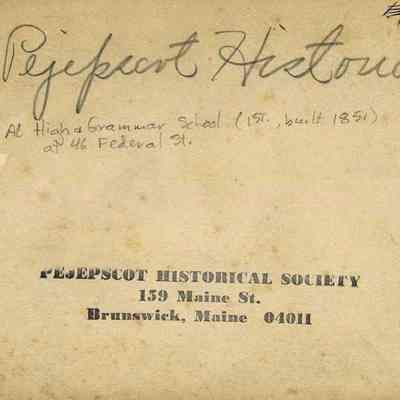 Pejepscot Historic
At High & Grammar School (1st., built 1851)
at 46 Federal St.
PEJEPSCOT HISTORICAL SOCIETY
159 Maine St.
Brunswick, Maine 04011